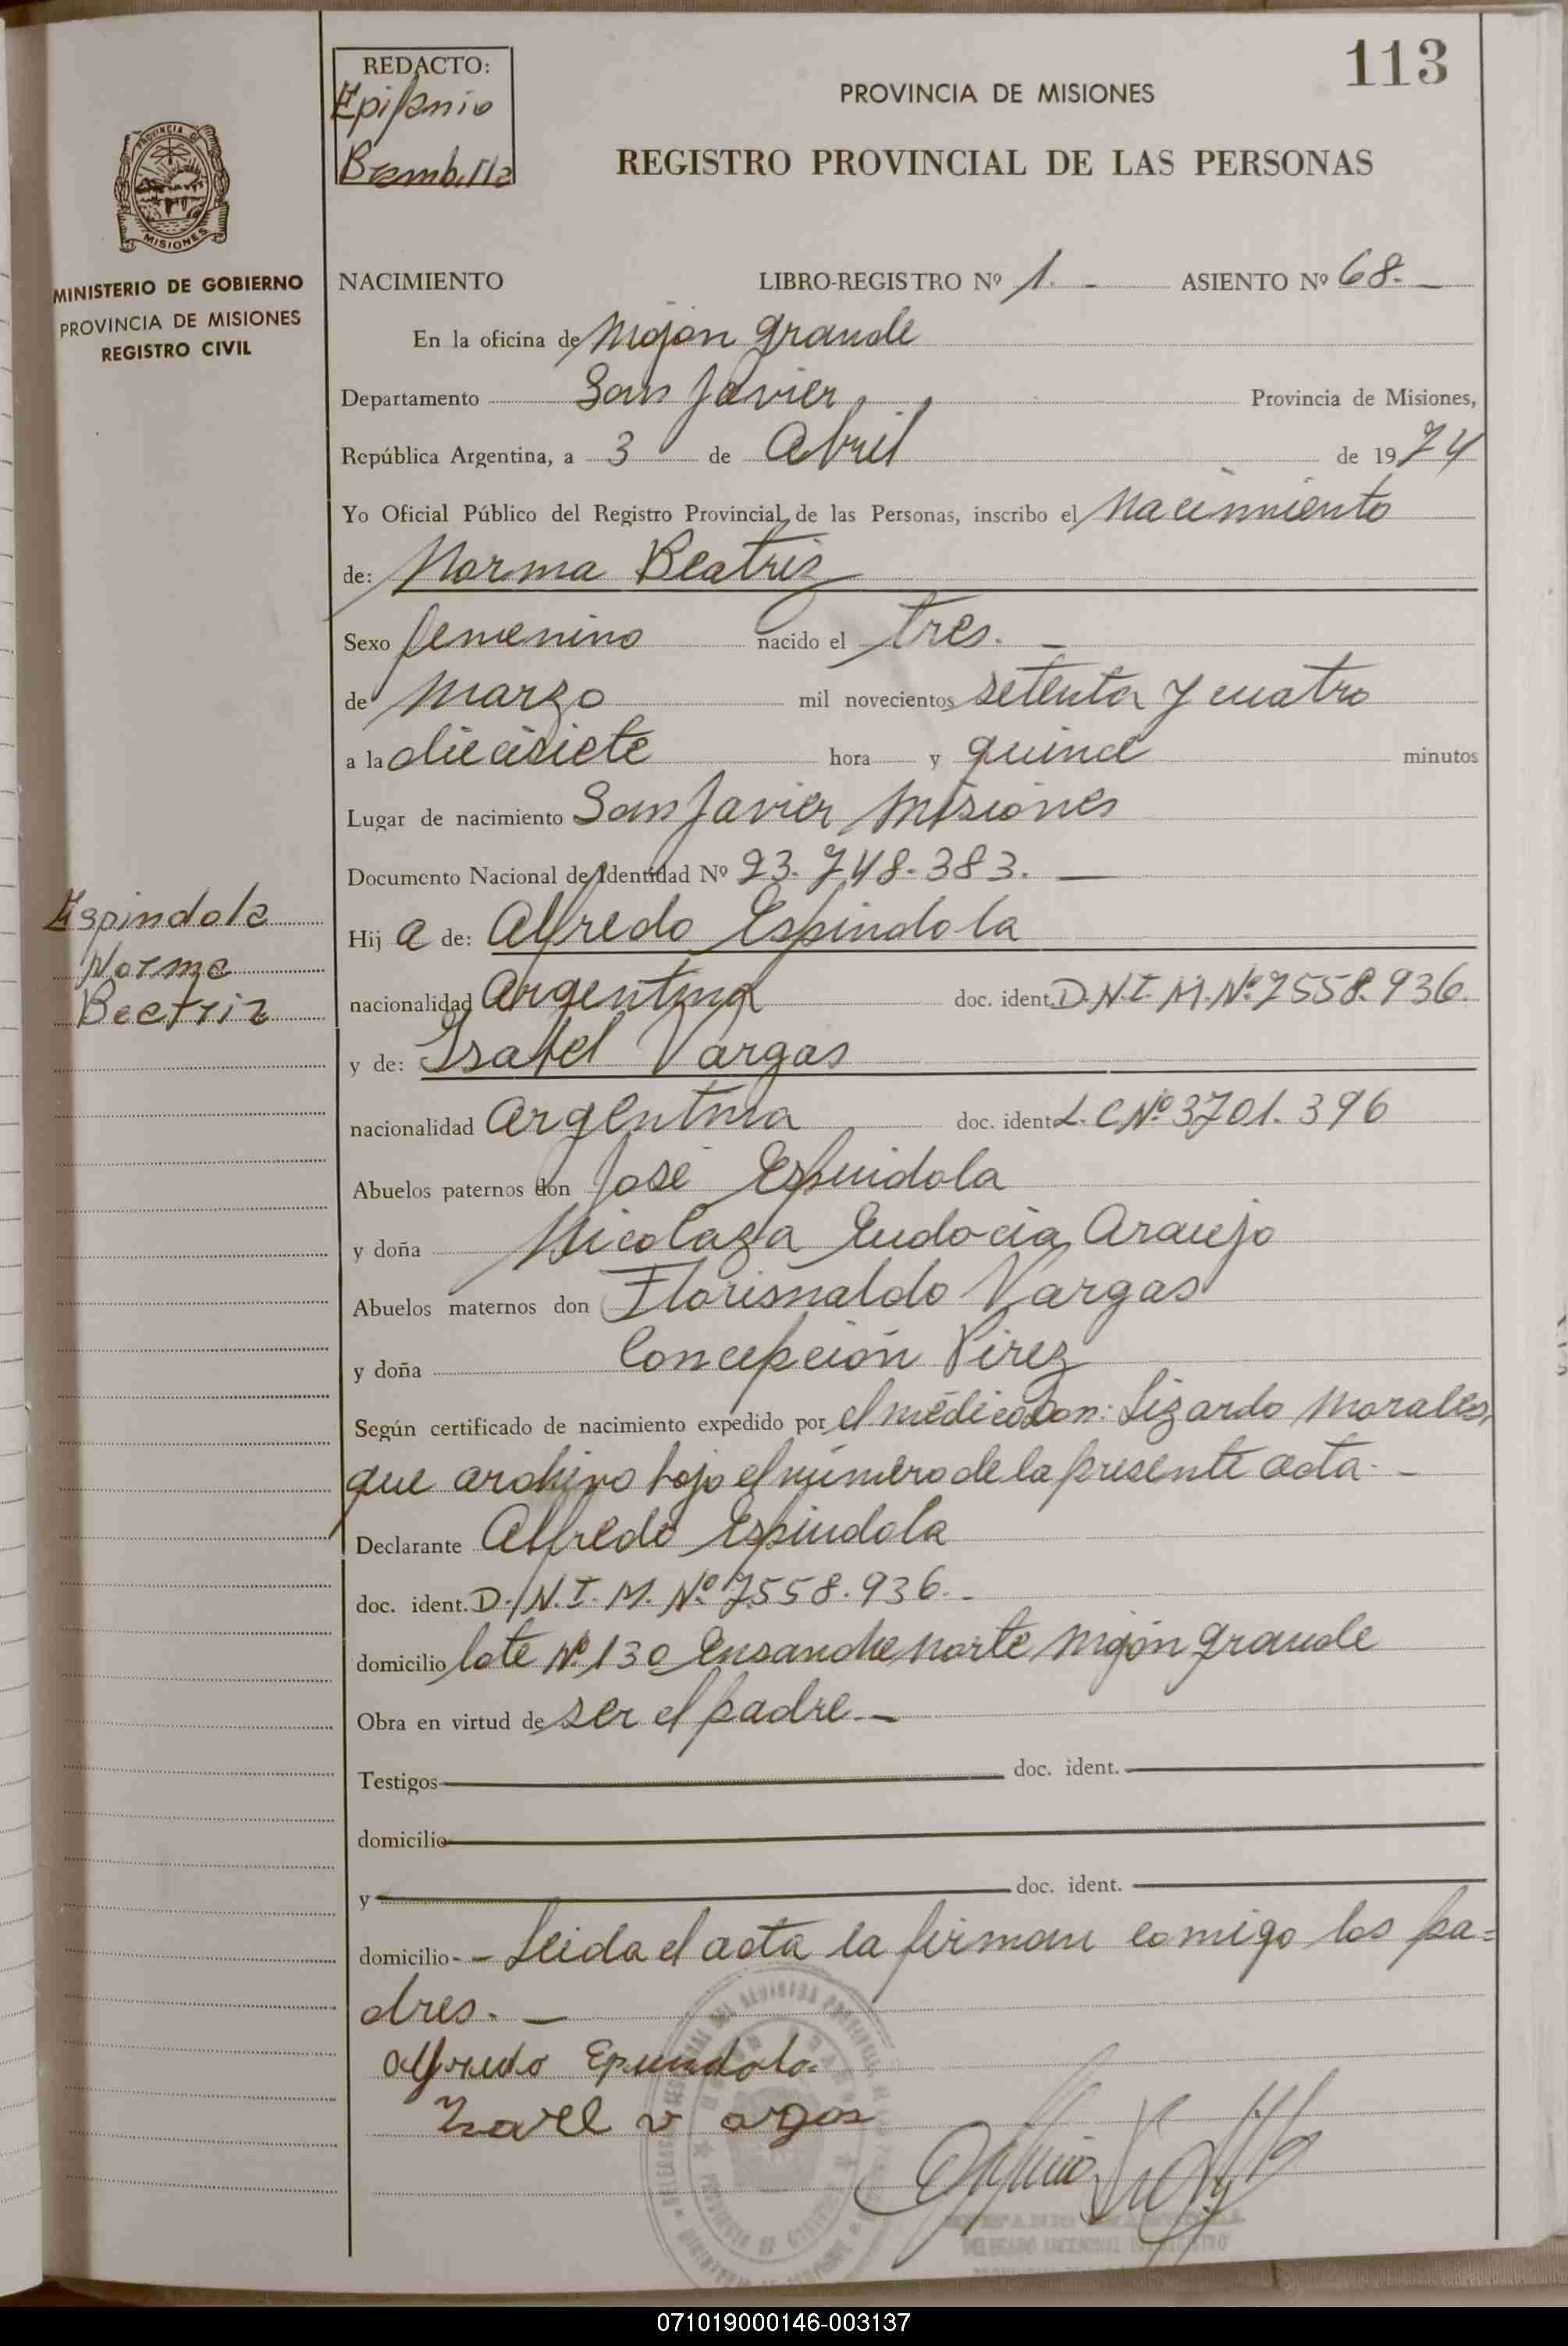 113
REDACTO:
Epifanio
Brambilla
PROVINCIA DE MISIONES
REGISTRO PROVINCIAL DE LAS PERSONAS
PROVINCIA DE
MISIONES
MINISTERIO DE GOBIERNO
PROVINCIA DE MISIONES
REGISTRO CIVIL
NACIMIENTO LIBRO-REGISTRO Nº 1.- ASIENTO Nº 68.-
En la oficina de Mojon grande
Departamento San Javier, Provincia de Misiones,
República Argentina, a 3 de Abril de 1974
Yo Oficial Público del Registro Provincial de las Personas, inscribo el Nacimiento
de: Norma Beatriz
Sexo femenino nacido el tres.-
de marzo mil novecientos setenta y cuatro
a la diecisiete hora y quince minutos
Lugar de nacimiento San Javier Misiones
Documento Nacional de Identidad Nº 23.748.383.-
Espindola
Norma
Beatriz
Hij a de: Alfredo Espindola
nacionalidad Argentina doc. ident. D.N.I. M. Nº 7558.936.
y de: Isabel Vargas
nacionalidad Argentina doc. ident. L.C. Nº 3701.396
Abuelos paternos don José Espindola
y doña Nicolaza Eudocia Araujo
Abuelos maternos don Florisnaldo Vargas
y doña Concepción Pirez
Según certificado de nacimiento expedido por el médico Don: Lizardo Morales,
que archivo bajo el número de la presente acta.-
Declarante Alfredo Espindola
doc. ident. D.N.I. M. Nº 7558.936.-
domicilio lote Nº 130 Ensanche norte Mojón grande
Obra en virtud de ser el padre.-
Testigos doc. ident.
domicilio
y doc. ident.
domicilio - Leida el acta la firman comigo los pa=
dres.-
Alfredo Epundola
Isavel vargas
071019000146-003137